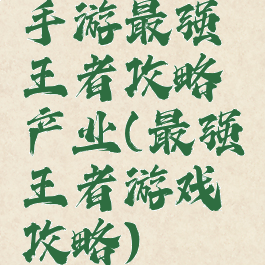 手游最强
王者攻略
产业(最强
王者游戏
攻略)